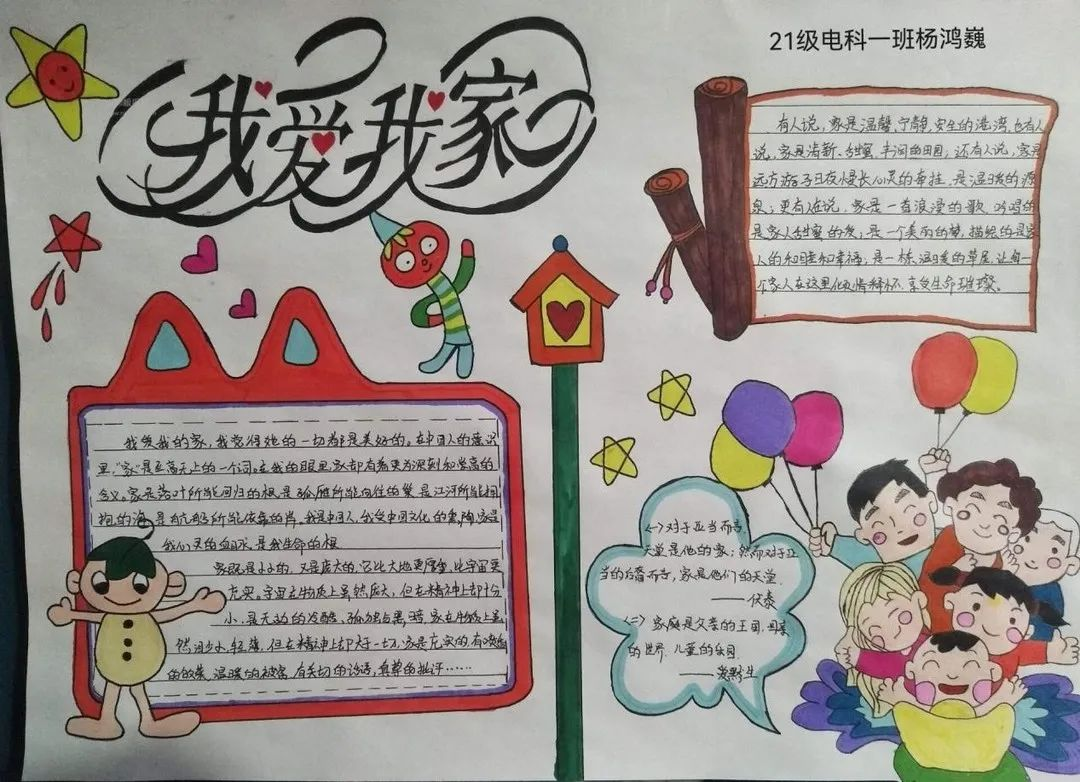 21级电科一班杨鸿巍
我爱我家
有人说，家是温馨、宁静、安生的港湾，也有人
说，家是清新、甜蜜、丰润的田园；还有人说，家是
远方游子日夜慢长心灵的牵挂，是温暖的源
泉；更有人在说，家是一首浪漫的歌，吟唱的
是家人甜蜜的爱；是一个美丽的梦，描绘的是家
人的和睦和幸福，是一栋温暖的草屋，让每一
个家人在这里倾情释怀，享受生命璀璨。
我爱我的家，我觉得她的一切都是美好的，在中国人的意识
里，“家”是至高无上的一个词。在我的眼里，家却有着更为深刻和崇高的
含义。家是落叶所能回归的根，是孤雁所能向往的巢，是江河所能拥
抱的海，是航船所能依靠的岸。我是中国人，我受中国文化的熏陶，家是
我们心灵的归宿，是我生命的根
家既是小的，又是庞大的，它比大地更厚重，比宇宙更
充实，宇宙在物质上虽然庞大，但在精神上却十分
小，是无边的冷酷，孤独与黑暗，家在物质上虽
然渺小，轻薄，但在精神上却好一切，家是充实的，有欢畅
的欢笑，温暖的被窝，有关切的话语，真挚的批评……
〈一〉对于亚当而言，
天堂是他的家；然而对于亚
当的后裔而言，家是他们的天堂。
——伏泰
〈二〉家庭是父亲的王国，母亲
的世界，儿童的乐园
——爱默生